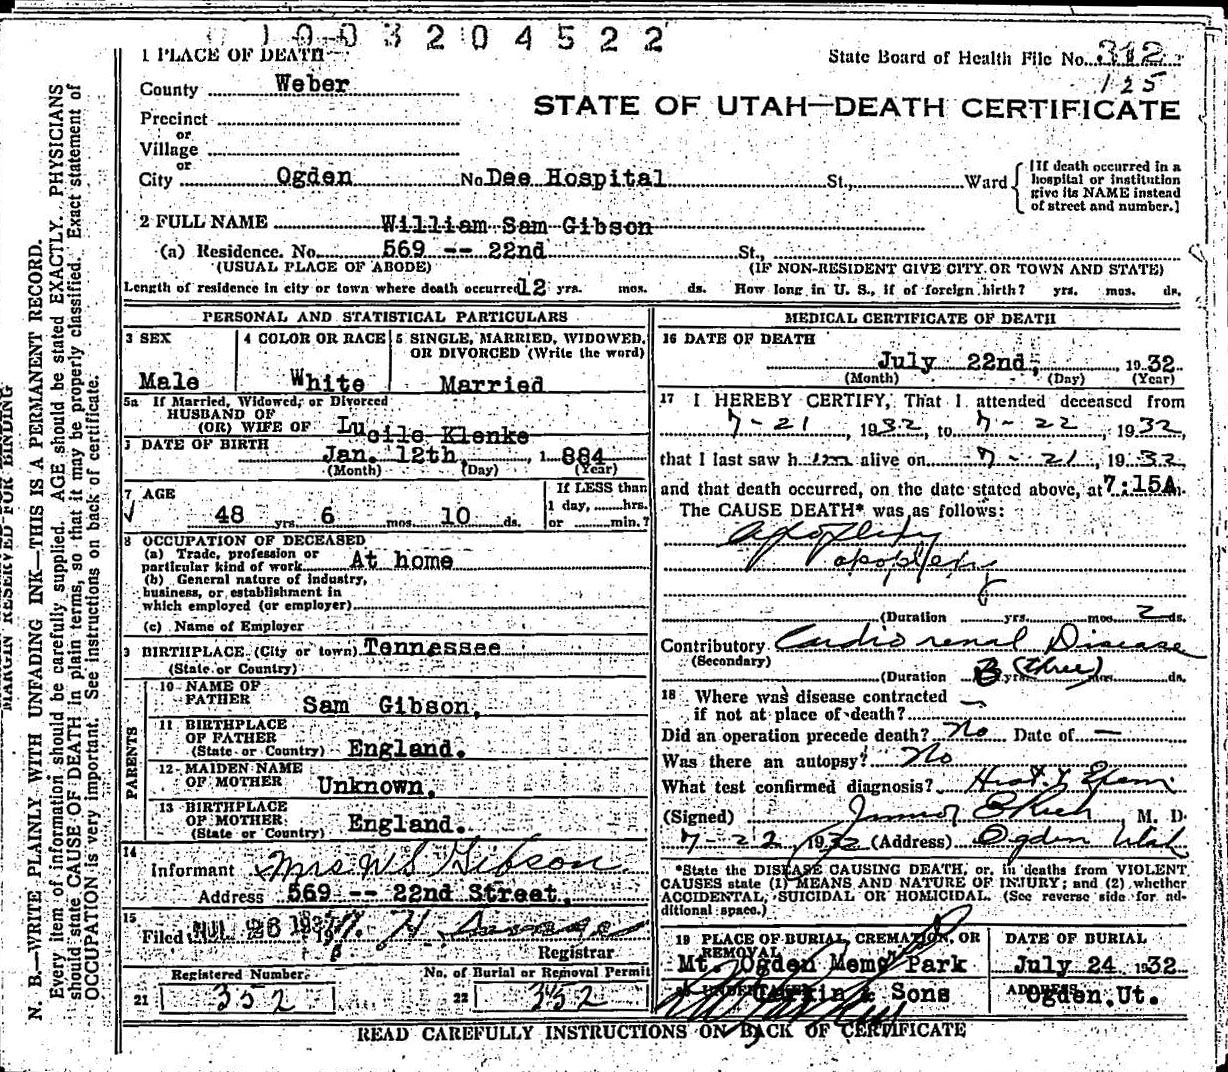 1003204522
1 PLACE OF DEATH
State Board of Health File No. 312
125
County Weber
STATE OF UTAH—DEATH CERTIFICATE
Precinct
or
Village
or
City Ogden No Dee Hospital St., Ward
[If death occurred in a
hospital or institution
give its NAME instead
of street and number.]
2 FULL NAME William Sam Gibson
(a) Residence. No. 569 -- 22nd St.,
(USUAL PLACE OF ABODE) (IF NON-RESIDENT GIVE CITY OR TOWN AND STATE)
Length of residence in city or town where death occurred 12 yrs. mos. ds. How long in U. S., if of foreign birth? yrs. mos. ds.
PERSONAL AND STATISTICAL PARTICULARS
3 SEX 4 COLOR OR RACE 5 SINGLE, MARRIED, WIDOWED,
OR DIVORCED (Write the word)
Male White Married
5a If Married, Widowed, or Divorced
HUSBAND OF
(OR) WIFE OF Lucile Klenke
DATE OF BIRTH
Jan. 12th, 1884
(Month) (Day) (Year)
7 AGE
If LESS than
1 day, hrs.
48 yrs. 6 mos. 10 ds. or min.?
8 OCCUPATION OF DECEASED
(a) Trade, profession or
particular kind of work At home
(b) General nature of industry,
business, or establishment in
which employed (or employer)
(c) Name of Employer
9 BIRTHPLACE (City or town) Tennessee
(State or Country)
PARENTS
10 NAME OF
FATHER Sam Gibson,
11 BIRTHPLACE
OF FATHER
(State or Country) England.
12 MAIDEN NAME
OF MOTHER Unknown.
13 BIRTHPLACE
OF MOTHER
(State or Country) England.
14
Informant Mrs W S Gibson
Address 569 -- 22nd Street,
15
Filed JUL 26 193
Registrar
Registered Number No. of Burial or Removal Permit
21 352 22 352
MEDICAL CERTIFICATE OF DEATH
16 DATE OF DEATH
July 22nd, 1932
(Month) (Day) (Year)
17 I HEREBY CERTIFY, That I attended deceased from
7-21, 1932, to 7-22, 1932,
that I last saw him alive on 7-21, 1932
and that death occurred, on the date stated above, at 7:15A m.
The CAUSE DEATH* was as follows:
Apoplexy
apoplexy
(Duration yrs. mos. 2 ds.
Contributory Cardio renal Disease
(Secondary)
(Duration 3 (three) yrs. mos. ds.
18 Where was disease contracted
if not at place of death?
Did an operation precede death? No Date of —
Was there an autopsy? No
What test confirmed diagnosis?
(Signed) M. D.
7-22 1932 (Address) Ogden Utah
*State the DISEASE CAUSING DEATH, or, in deaths from VIOLENT
CAUSES state (1) MEANS AND NATURE OF INJURY; and (2) whether
ACCIDENTAL, SUICIDAL OR HOMICIDAL. (See reverse side for ad-
ditional space.)
19 PLACE OF BURIAL, CREMATION, OR
REMOVAL
DATE OF BURIAL
Mt. Ogden Memo Park July 24 1932
20 UNDERTAKER Larkin & Sons ADDRESS Ogden, Ut.
READ CAREFULLY INSTRUCTIONS ON BACK OF CERTIFICATE
MARGIN RESERVED FOR BINDING
N. B.—WRITE PLAINLY WITH UNFADING INK—THIS IS A PERMANENT RECORD.
Every item of information should be carefully supplied. AGE should be stated EXACTLY. PHYSICIANS
should state CAUSE OF DEATH in plain terms, so that it may be properly classified. Exact statement of
OCCUPATION is very important. See instructions on back of certificate.